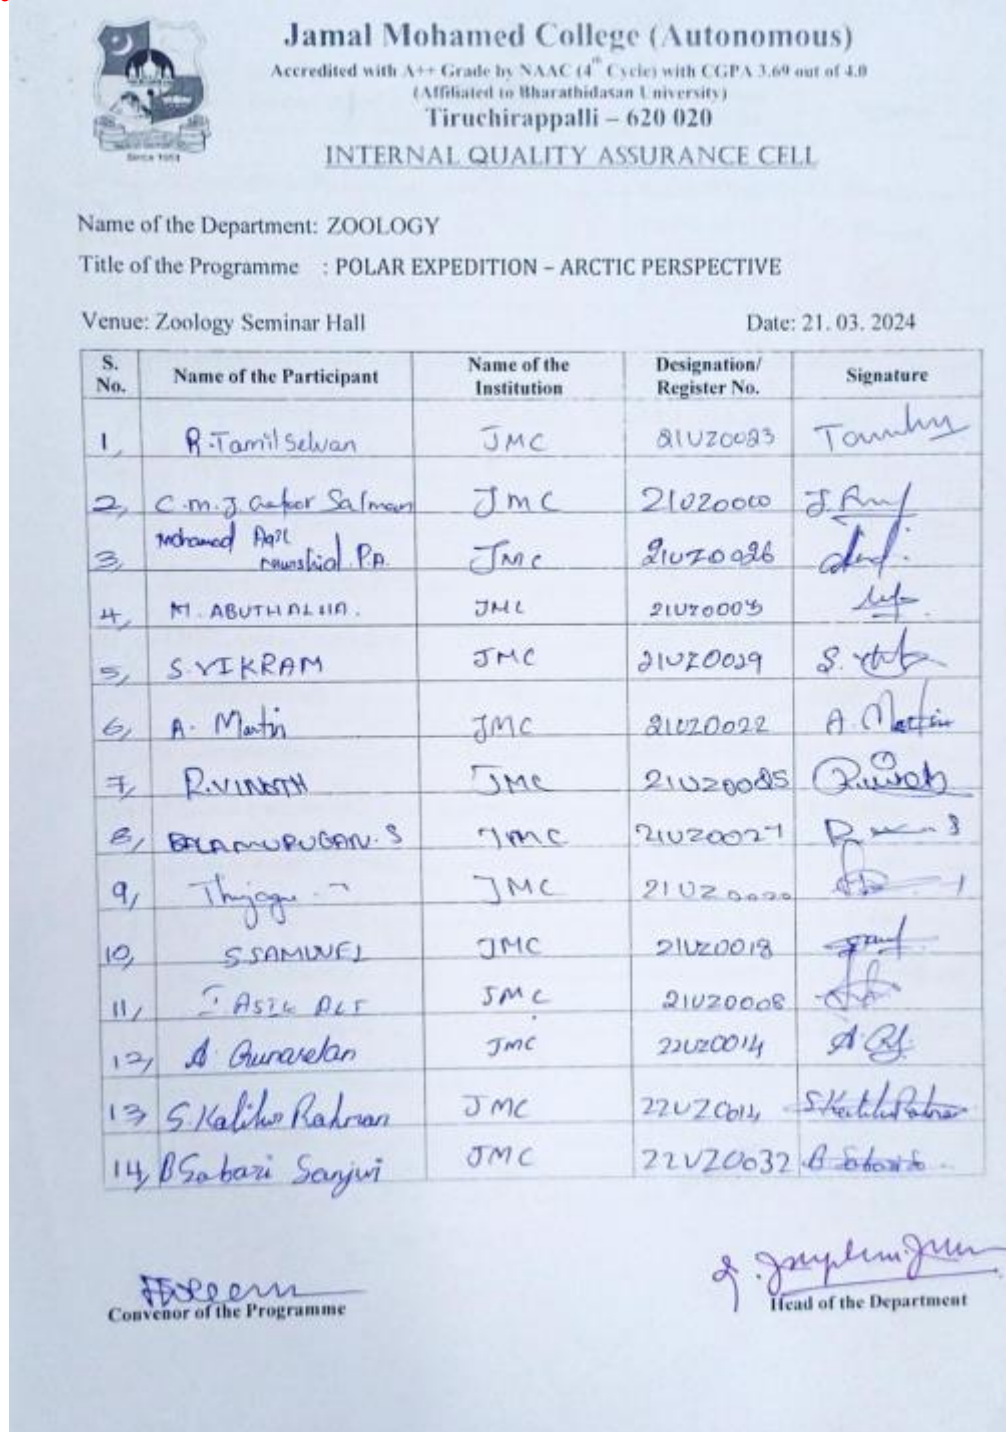 Jamal Mohamed College (Autonomous)
Accredited with A++ Grade by NAAC (4th Cycle) with CGPA 3.69 out of 4.0
(Affiliated to Bharathidasan University)
Tiruchirappalli – 620 020
INTERNAL QUALITY ASSURANCE CELL
Since 1951
Name of the Department: ZOOLOGY
Title of the Programme : POLAR EXPEDITION – ARCTIC PERSPECTIVE
Venue: Zoology Seminar Hall Date: 21. 03. 2024
S. No. Name of the Participant Name of the Institution Designation/ Register No. Signature
1, R.Tamil Selvan JMC 21UZ0023
2, C.M.J Salman JMC
3, Mohamed Aqil P.A. JMC 21UZ0026
4, M. ABUTHALHA. JMC
5, S.VIKRAM JMC 21UZ0029 S.
6, A. Martin JMC 21UZ0022 A. Martin
7, R.VINOTH JMC 21UZ0025
8, BALAMURUGAN. S JMC 21UZ0027
9, JMC
10, S SAMUVEL JMC 21UZ0018
11, JMC 21UZ0008
12, A. Gunaselan JMC 22UZ0014
13 S. Rahman JMC 22UZ0014
14, B Sabari Sanjivi JMC 22UZ0032 B
Convenor of the Programme Head of the Department